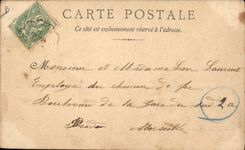 CARTE POSTALE
Ce côté est exclusivement réservé à l'adresse.
Monsieur et Madame Léon Laurent
Employé du chemin de fer
Boulevard de la Gare du Sud 2a
Prado Marseille